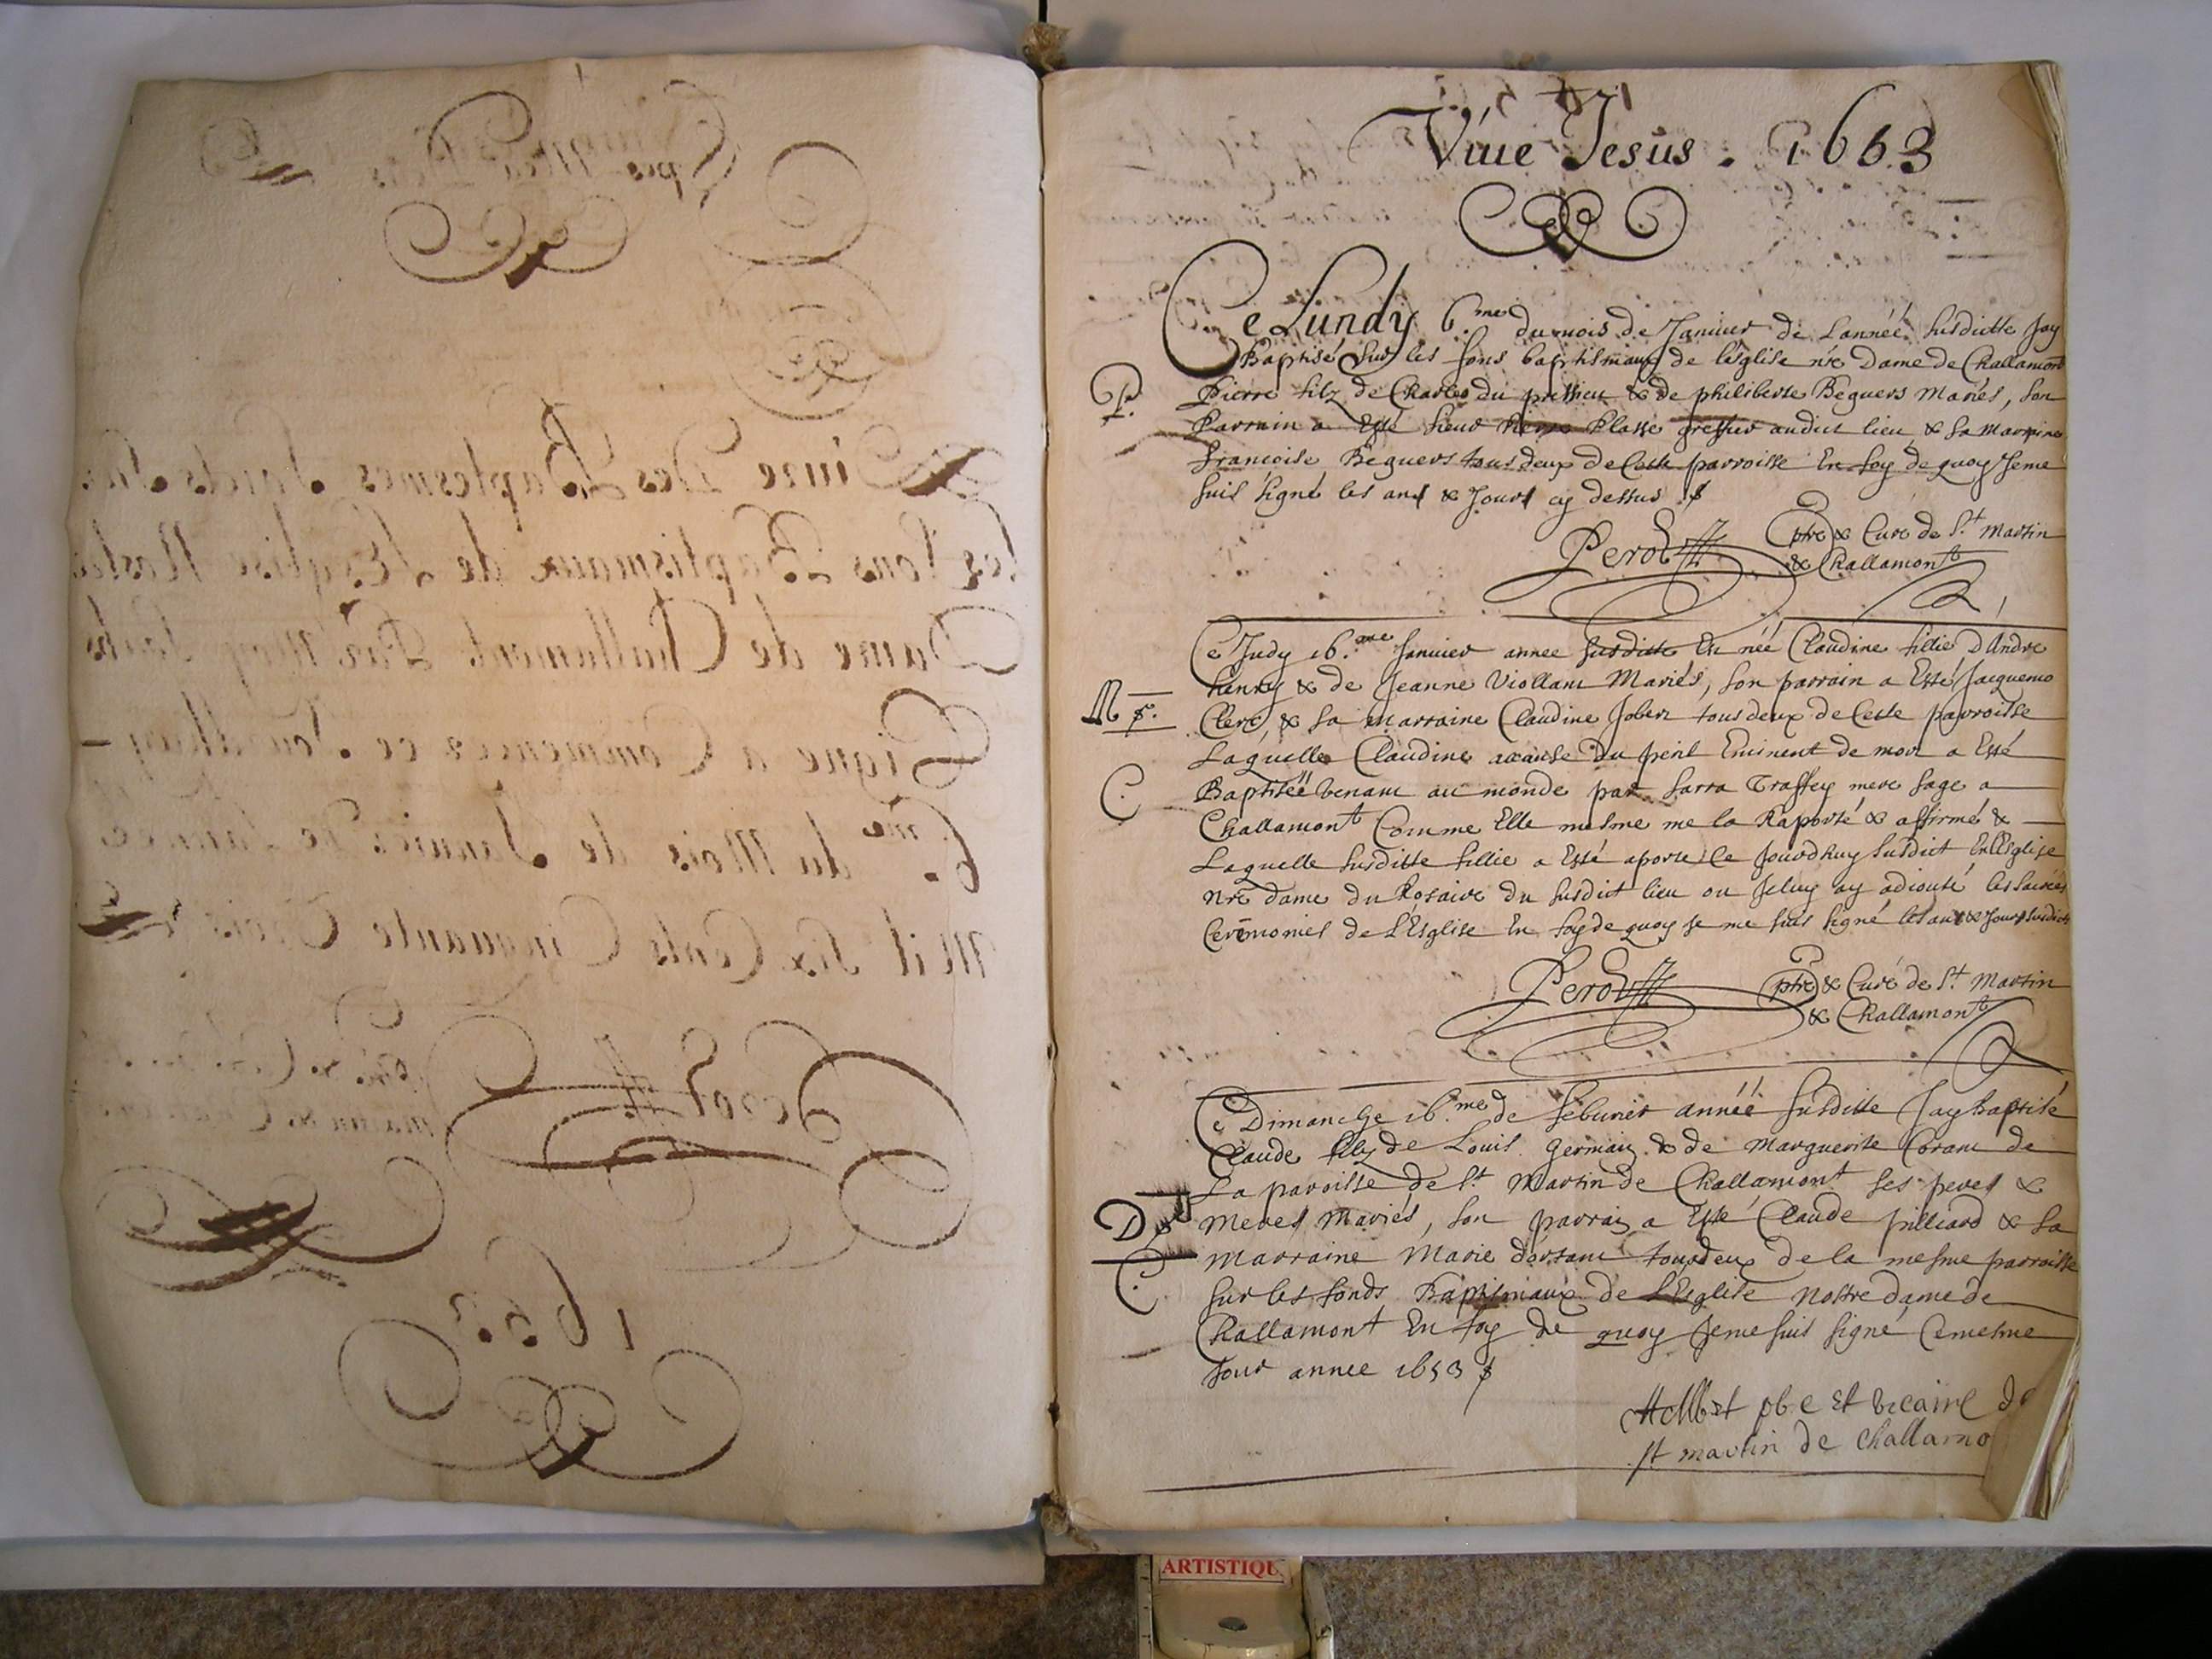 Liure Des Baptesmes Faicts Sur
les fons Baptismaux de l'Esglise Nostre
Dame de Challamont Par moy soubs
Signe a Commences ce Jourdhuy
6.me du Mois de Januier De Lannee
Mil Six Cents Cinquante Trois
Perot
1653
Viue Jesus . 1653
Ce Lundy 6.me du mois de Januier de Lanneé susditte Jay
Baptisé sur les fons baptismaux de leglise nre Dame de Challamont
P.
Pierre filz de Charles du pressieu & de philiberte Beguers Mariés, son
Parrain a Esté sieur Plasse greffier audict lieu & sa Marraine
francoise Beguers tous deux de Ceste parroisse En foy de quoy Jeme
suis signé les ans & Jours cy dessus
Perot ptre & Curé de St. Martin
& Challamont
Ce Judy 16.me Januier annee susditte Est neé Claudine fillie D'Andre
henry & de Jeanne Viollant Mariés, son parrain a Esté Jacquemo
N
Clerc, & sa marraine Claudine Jobert tous deux de Ceste parroisse
Laquelle Claudine acause du peril Eminent de mort a Esté
C.
Baptiseé venant au monde par Sarra Traffey mere sage a
Challamont Comme Elle mesme me la Raporté & affirmé &
Laquelle susditte fillie a Esté aporte Ce Jourdhuy susdict En L'Eglise
nre dame du Rosaire du susdict lieu ou Jeluy ay adiouté les sainctes
Ceremonies de L'Esglise En foy de quoy je me suis signé les an & Jours susdicts
Perot ptre & Curé de St. Martin
& Challamont
Ce Dimanche 16.me de feburier anneé susditte Jay Baptisé
Claude filz de Louis Germain & de Marguerite Corant de
La paroisse de St. Martin de Challamont ses peres &
D
meres mariés, son parrain a Esté Claude pilliard & sa
C.
marraine Marie dortant tous deux de la mesme parroisse
sur les fonds Baptismaux de L'Esglise nostre dame de
Challamont En foy de quoy Jeme suis signé Cemesme
Jour annee 1653
pbe et vicaire de
st martin de Challamo
ARTISTIQU